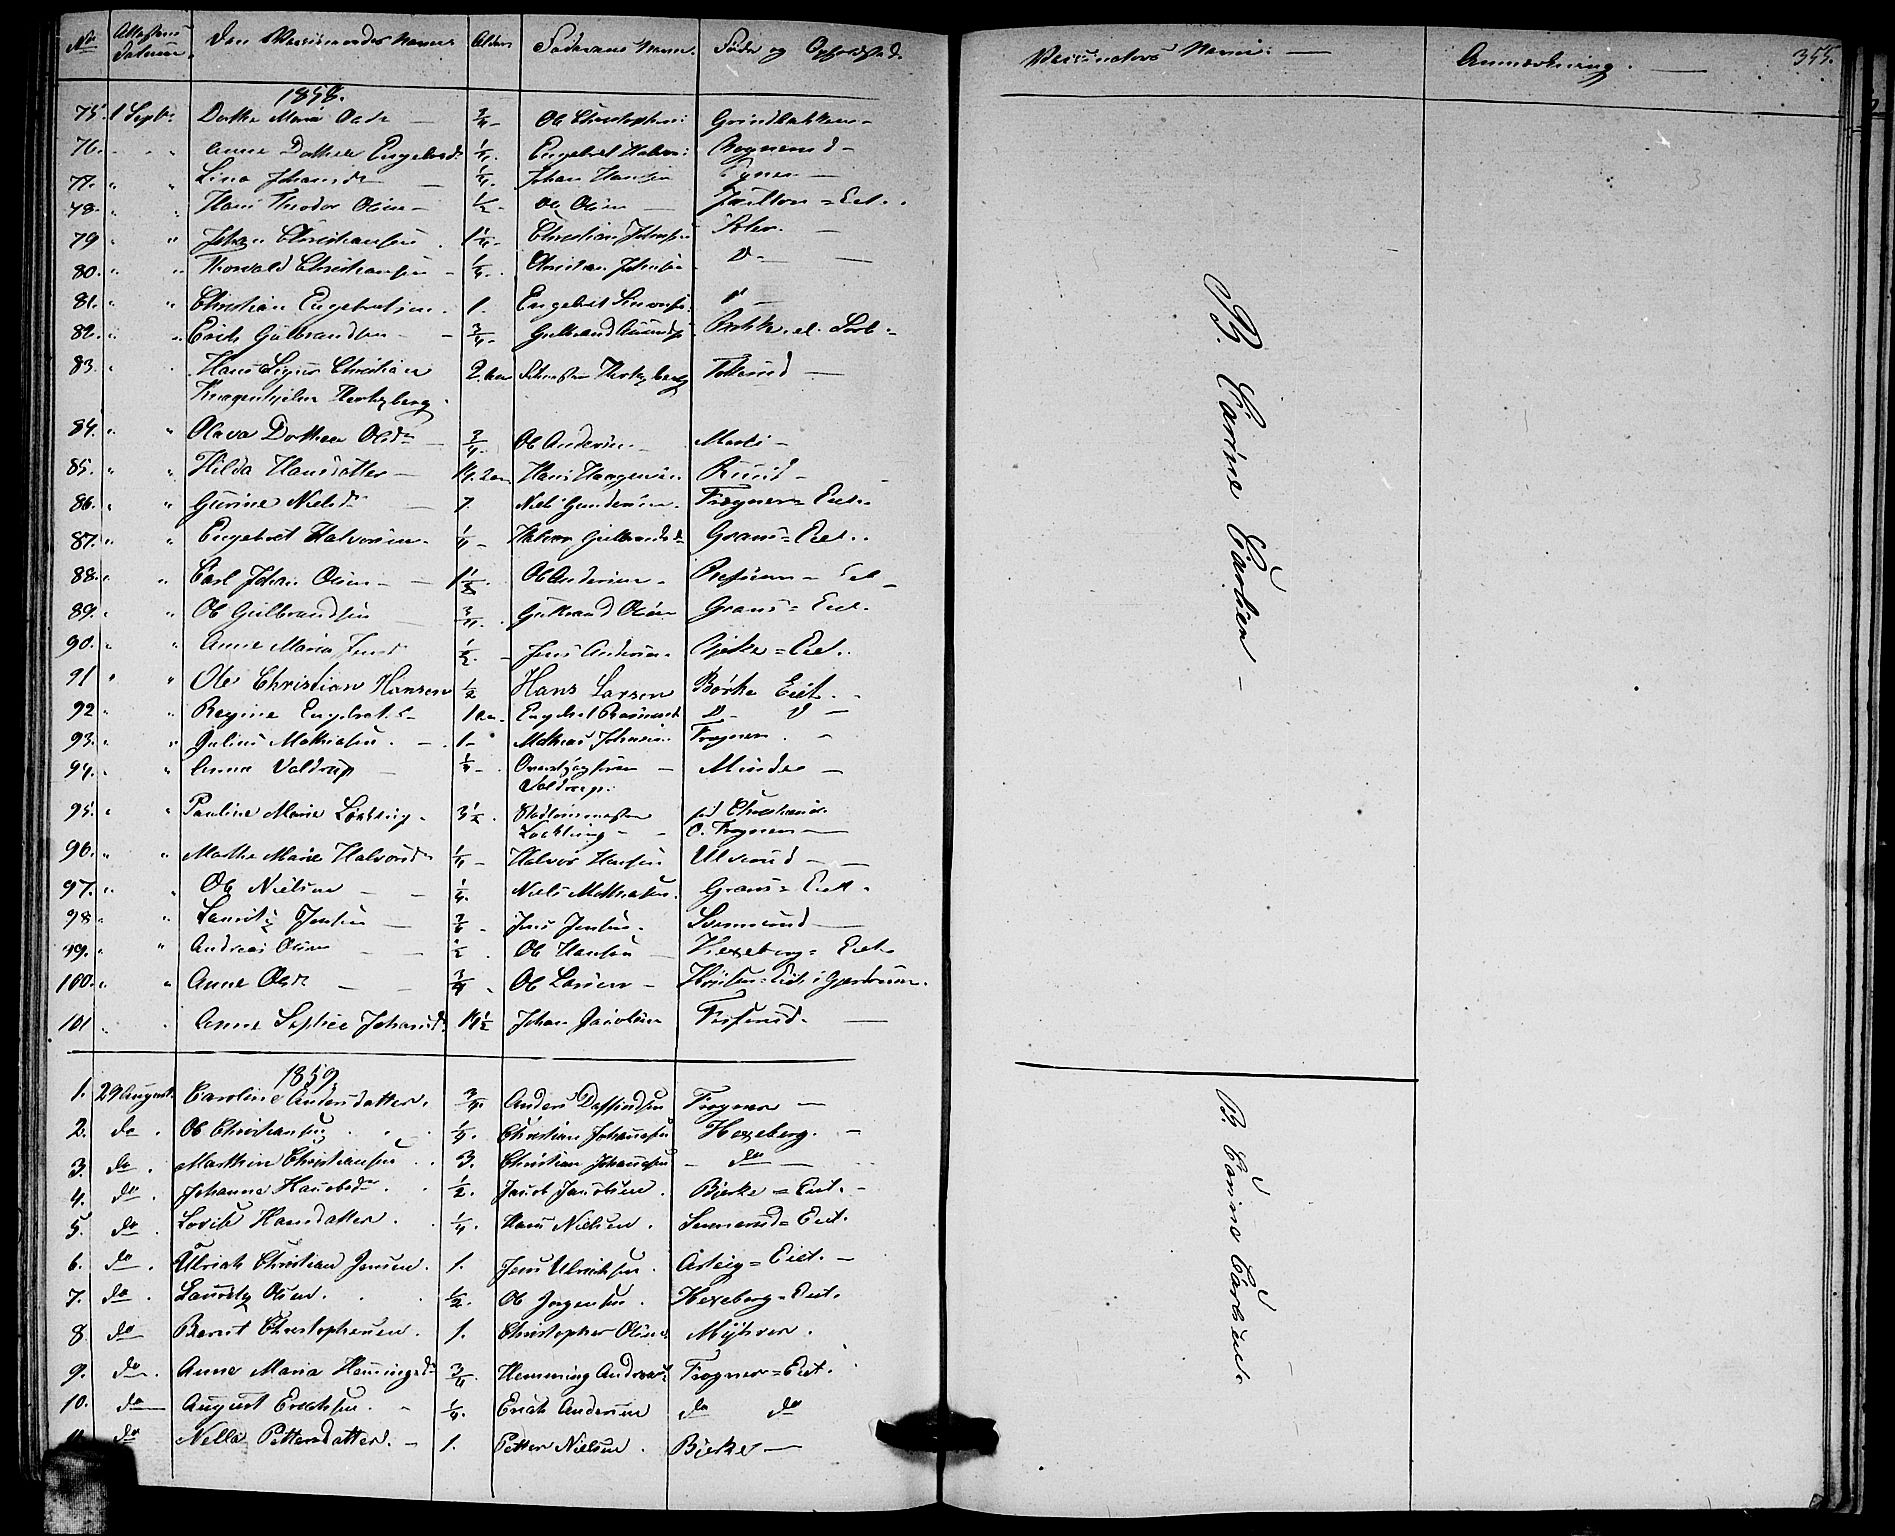 No Attestens Datum. Den Vaccineredes Navn. Alder Faderens Navn. Føde og Opholdsted. Vaccinators Navn. — Anmærkning. — 355.
1858.
75. 1 Septr. Dorthe Maria Olsdr — 3/4 - Ole Christophers: Grindbakken -
76. - " Anne Dorthea Engebretsd. 1/4. Engebret Halvors: Rognerud -
77. " " Lina Johansdr — 1/4. Johan Hansen —
78. " " Hans Theodor Olsen - 1/2 - Ole Olsen — = Eiet.
79 " " Johan Christiansen . 1 1/4. Christian Johnsen —
80. " " Thorvald Christiansen - 1/4. Christian Johnsen - Do — —
81. " " Christian Engebretsen. 1. Engebret Simonsen. Do —
82. " " Erich Gulbrandsen - 3/4 - Gulbrand Amundsen.
83. " " Hans Sigur Christian 2. Aar Hertzberg —
Knagenhjelm Hertzberg.
84. " " Olava Dorthea Olsdr — 3/4. Ole Andersen. -
85. " " Hilda Hansdatter — 14. Aar Hans Haagensen. Ruud -
86. " " Gurine Nielsdr — 7. Niels Gundersen. Frogner = Eiet.
87. " " Engebret Halvorsen. 1/4 - Halvor Gulbrandsen Grans = Eiet.
88. " " Carl Johan Olsen - — 1 1/2. Ole Andersen - = Eiet -
89. " " Ole Gulbrandsen 3/4. Gulbrand Olsen Grans = Eiet.
90. " " Anne Maria Jensdr 1/2. - Jens Andersen - Bjerke = Eiet.
91 " " Ole Christian Hansen 1/2 Hans Larsen Børke Eiet. -
92 " " Regine Engebret. d - 1 Aar. Engebret Do - Do —
93. " " Julius Mathiesen . - . 1 - Mathias Johnsen. Frogner . -
94. " " Anna Valdrup — 1/4 - — —
Valdrup.
95. " " Pauline Marie Løkting - 3 1/2.
- - Frogner —
96. " " Marthe Marie Halvorsdr 1/4 - Halvor Hansen Ulverud —
97. " " Ole Nielsen — - 1/4. Niels Mathiesen. Grans = Eiet -
98 " " Lauritz Jensen — 3/4 - Jens Jensen. —
99. " " Andreas Olsen - - 1/2. Ole Hansen — Hexeberg = Eiet.
100. " " Anne Olsdr — - 3/4. Ole Larsen - = Eiet i Gjerdrum.
101 " " Anne Sophie Johansdr. 14 1/2 Johan Jacobsen —
B. Carine Carlsen -
1859.
1. 29 August. Caroline Andersdatter. 3/4. Anders Frogner —
2. do . Ole Christiansen . . 1/4. Christian Johannesen Hexeberg. -
3. do . Marthin Christiansen . . 3. Christian Johannesen - do —
4. do . Johanne . 1/2. Jacob Jacobsen . Bjerke = Eiet. -
5. do . Lovise Hansdatter . . 1/4. Hans Nielsen . = Eiet.
6. do . Ulrich Christian Jensen . 1. Jens Ulrichsen . Asteig = Eiet. -
7. do . Lauritz Olsen . . . 1/2. Ole Jørgensen . Hexeberg = Eiet.
8. do Bernt Christophersen . 1. Christopher Olsen. Myhrer .
9. do . Anne Maria Hemmingsdr 3/4. Hemming Andreas: Frogner = Eiet.
10. do August Erichsen . - 1/4. Erich Andersen do do
11. do Nella Pettersdatter. - 1. Petter Nielsen . Bjerke —
B. Carine Carlsen.